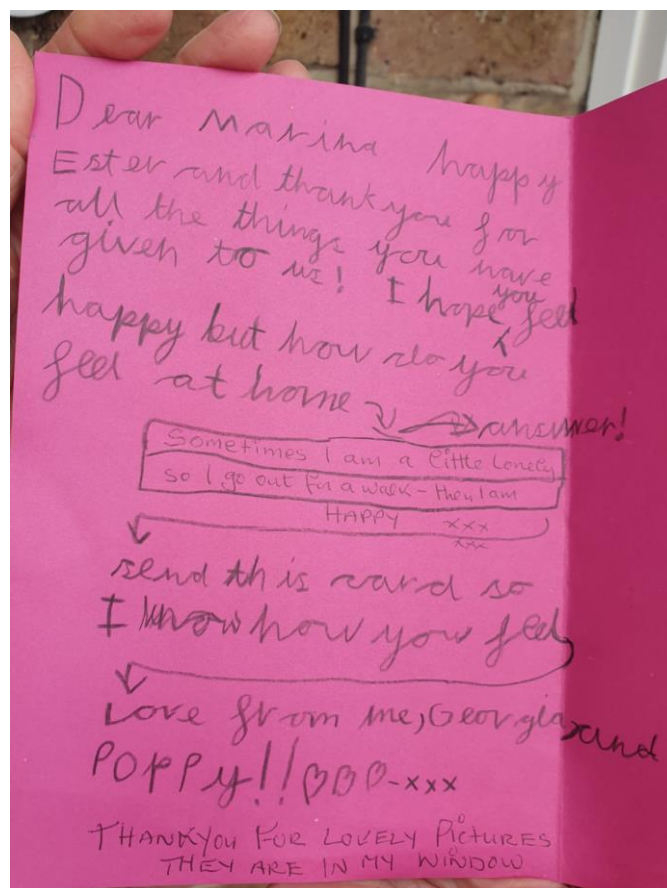 Dear Marina happy
Ester and thankyou for
all the things you have
given to us! I hope you feel
happy but how do you
feel at home answer!
Sometimes I am a little Lonely
so I go out for a walk - then I am
HAPPY xxx
xxx
send this card so
I know how you feel
Love from me, Georgia and
POPPY!! ♡♡♡-xxx
THANKYOU FOR LOVELY PICTURES
THEY ARE IN MY WINDOW